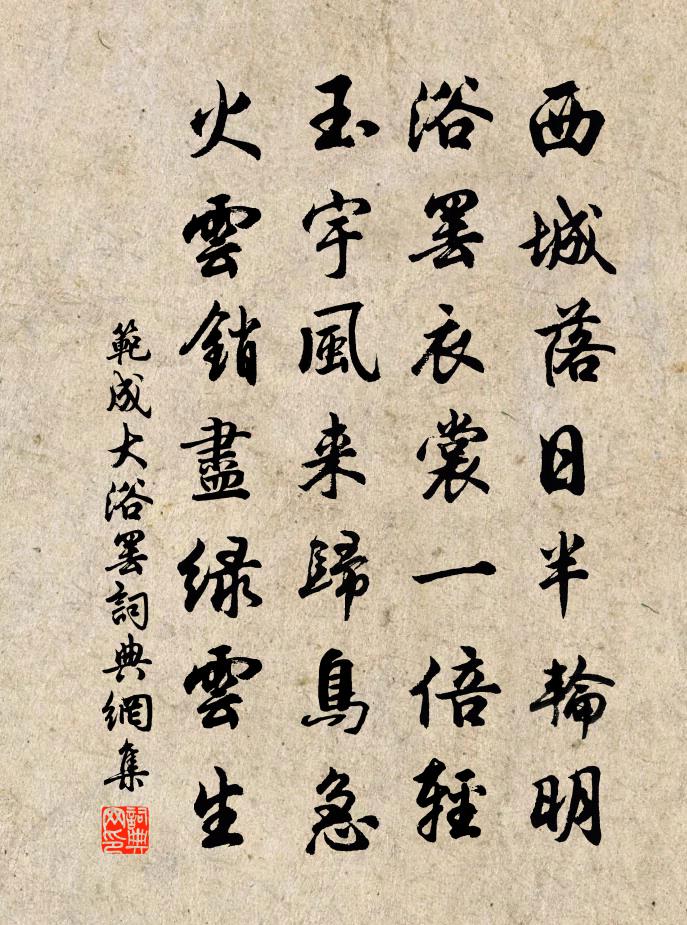 西城落日半輪明
浴罷衣裳一倍輕
玉宇風来歸鳥急
火雲銷盡緑雲生
範成大浴罷詞典網集
詞典网印